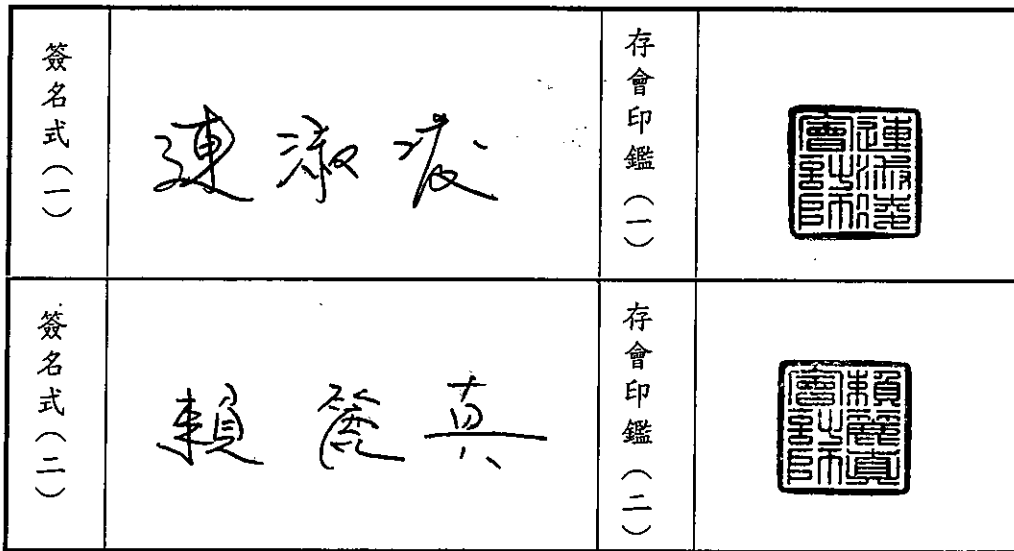 簽名式(一)
連淑凌
存會印鑑(一)
連淑凌
會計師
簽名式(二)
賴麗真
存會印鑑(二)
賴麗真
會計師